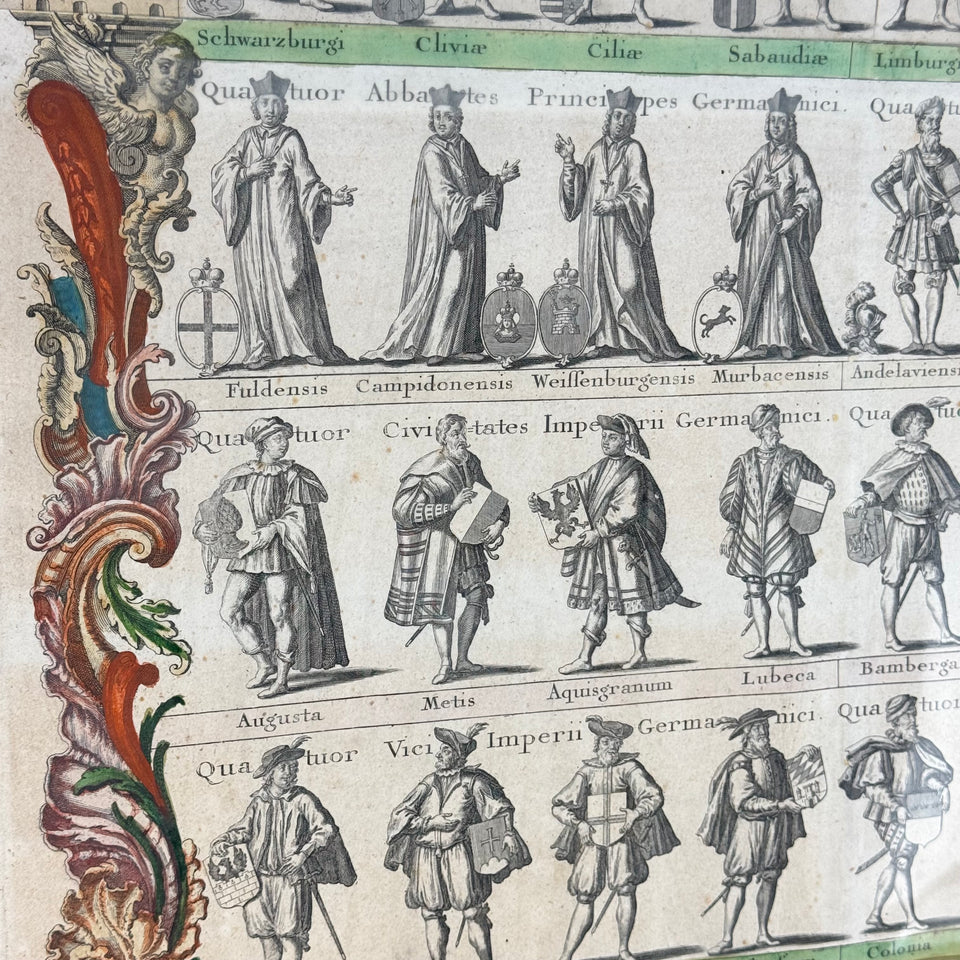 Schwarzburgi Cliviæ Ciliæ Sabaudiæ Limburgi
Quatuor Abbates Principes Germanici. Quatu
Fuldensis Campidonensis Weissenburgensis Murbacensis Andelaviensi
Quatuor Civitates Imperii Germanici. Quatuo
Augusta Metis Aquisgranum Lubeca Bamberga
Quatuor Vici Imperii Germanici. Quatuor
Colonia